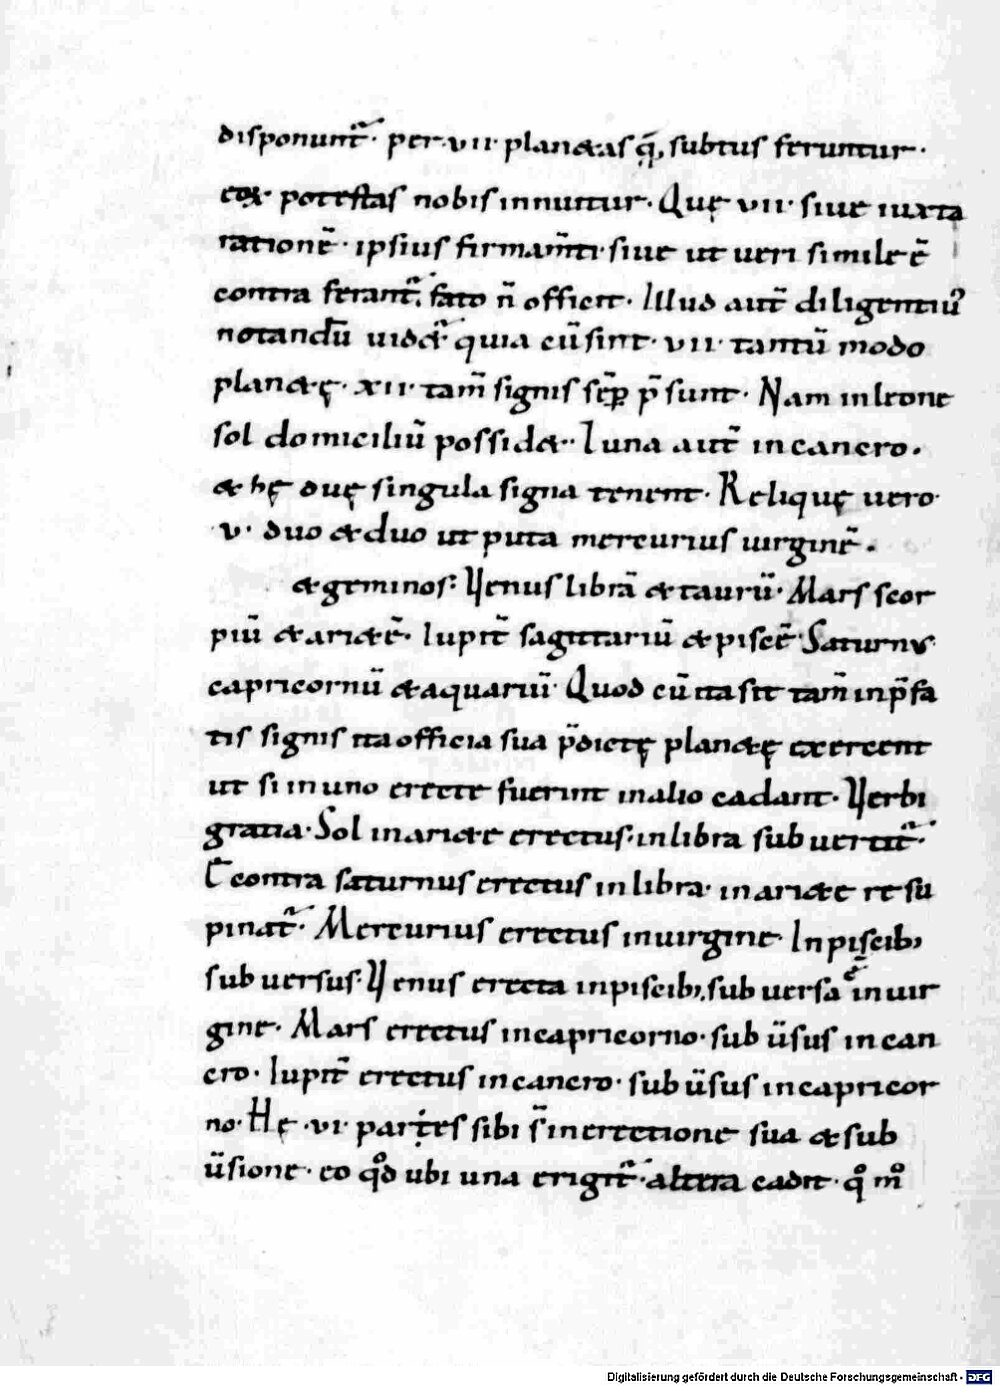 disponunt̃· per·vii· planetas q̃ subtus feruntur·
eoꝝ potestas nobis innuitur· Quę vii· siue iuxta
rationē· ipsius firmam̃ti· siue ut ueri simile ē
contra ferant̃· fato ñ officit· Illud aut̃ diligentiu᷒
notandū uidet̃ quia cū sint· vii· tantū modo
planetę· xii· tam̃ signis sēꝑ p̄sunt· Nam in leone
sol domiciliū possidet· Luna aut̃ in cancro·
et hę duę singula signa tenent· Reliquę uero·
v· duo et duo ut puta mercurius uirginē·
et geminos: Venus librā et taurū· Mars scor
piū et arietē· Iupit̃ sagittariū et piscē· Saturnus
capricornū et aquariū· Quod cū ita sit tam̃ in p̄fa
tis signis ita officia sua p̄dictę planetę exercent
ut si in uno erecte fuerint in alio cadant· Verbi
gratia· Sol in ariete erectus· in libra sub uertit̃·
E contra saturnus erectus in libra· in ariete resu
pinat̃· Mercurius erectus in uirgine· In piscib;
sub uersus· Venus erecta in piscib; sub uersa ē in uir
gine· Mars erectus in capricorno· sub ũsus in can
cro· Iupit̃ erectus in cancro· sub ũsus in capricor
no· Hę ·vi· partes sibi s̃ in erectione sua et sub
ũsione· eo qd̊ ubi una erigit̃· altera cadit· q̊ m̊